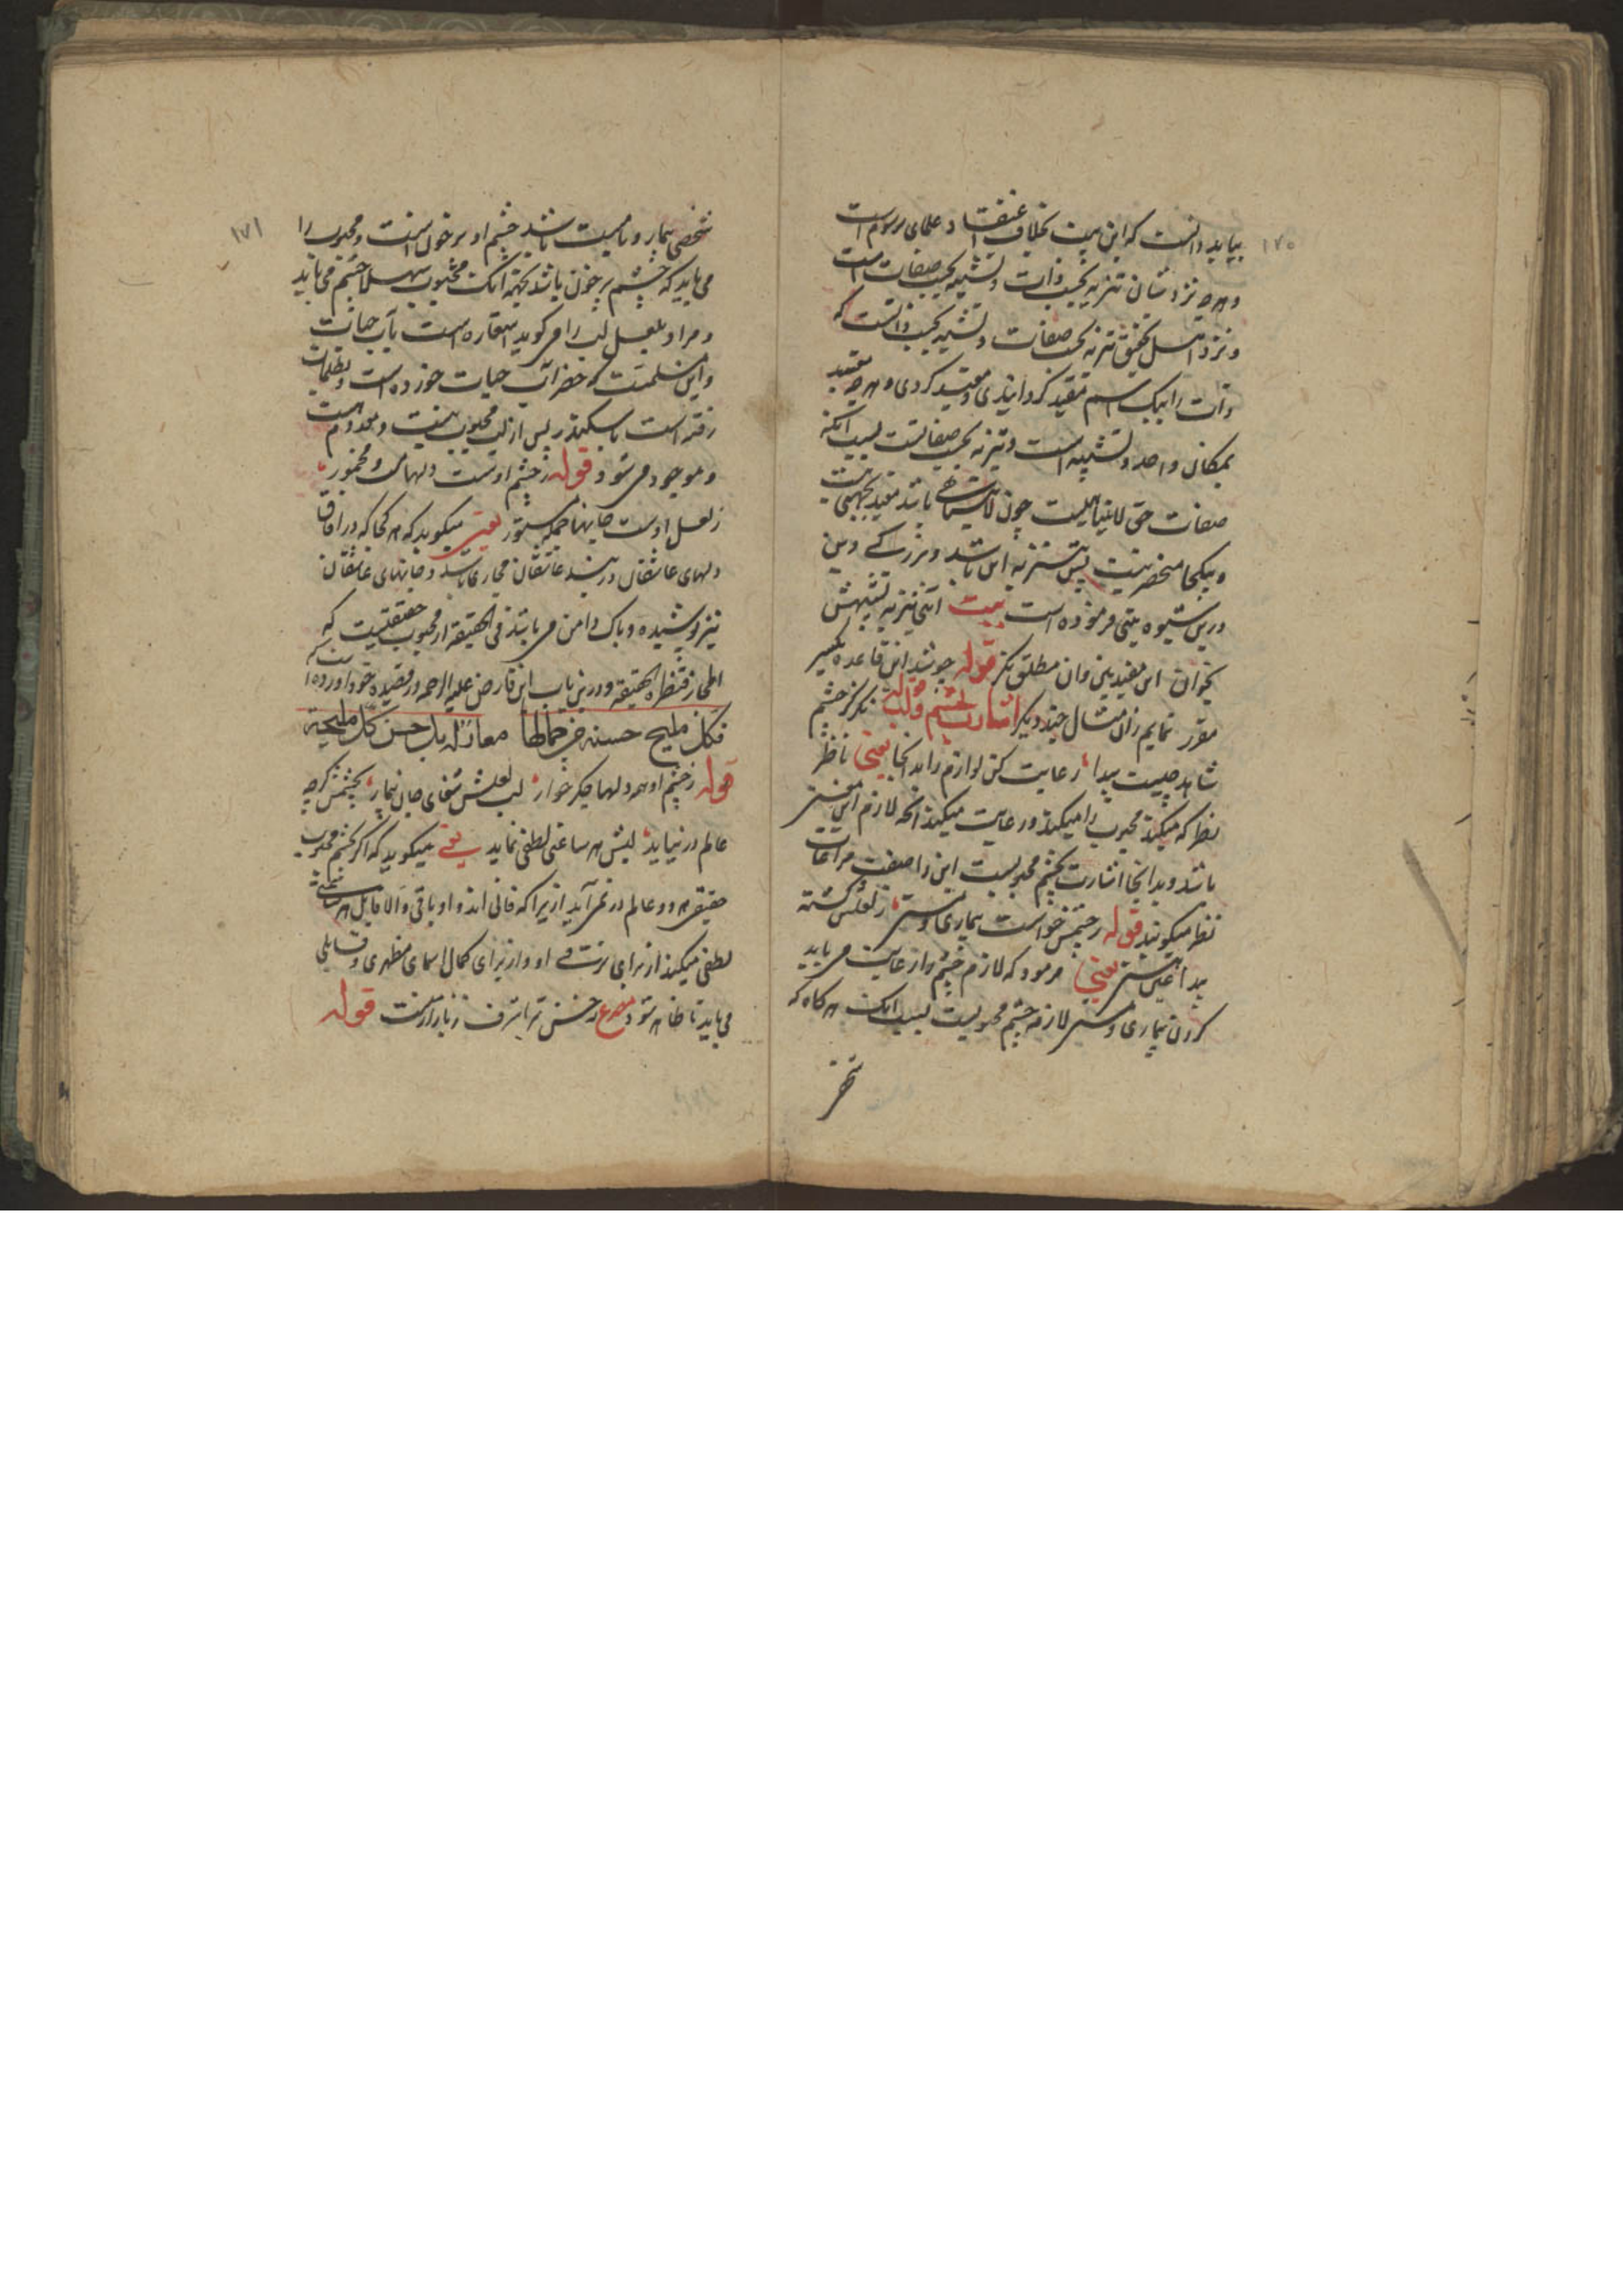 ١٧٠
بباید دانست که این بیت بخلاف اعتقاد علمای رسوم است
و هرچه نزد شان تنزیه بحسب ذات و تشبیه بحسب صفات است
و نزد اهل تحقیق تنزیه بحسب صفات و تشبیه بحسب ذاتست که
ذات را بیک اسم مقید گردانیدی و مقید کردی و هرچه مقید
بمکان واحد و تشبیه است و تنزیه بحسب صفاتست بسبب آنکه
صفات حق لایتناهیست چون لایتناهی باشد مقید بجهتی نیست
و بیکجا منحصر نیست پس تنزیه این باشد و بزرگی دین
درین شیوه بیتی فرموده است بیت آنی تنزیه تشبیهش
بخوان این مقید بین وان مطلق نگر قوله چو شد این قاعده یکسر
مقرر نمایم زان مثال چند دیگر اشارت بچشم و لب قوله نگر کز چشم
شاهد چیست پیدا رعایت کن لوازم را بدانجا یعنی ناظر
نظر که میکند محبوب را میکند و رعایت میکند آنچه لازم این معنی
باشد و بدانجا اشارت بچشم محبوبست این را صفت مراعات
نظر میگویند قوله ز چشمش خواست بیماری و مستی ز لعلش گشته
پیدا عین هستی یعنی فرمود که لازم چشم را رعایت می باید
کردن بیماری و مستی لازمه چشم محبوبست بسبب آنک هرگاه که
شخصی
١٧١
شخصی بیمار و یا مست باشد چشم او پرخون است و محبوب را
می باید که چشم پرخون باشد بجهة آنک محبوب شهلا چشم می باید
و مراد بلعل لب را می گوید استعاره است بآب حیات
و این مسلمست که خضر آب حیات خورده است و بظلمات
رفته است با سکندر پس از لب محبوب نیست و معدوم هست
و موجود می شود قوله ز چشم اوست دلها مست و مخمور
ز لعل اوست جانها جمله مستور یعنی میگوید که هر کجا که در آفاق
دلهای عاشقان در بند عاشقان مجازی باشد و جانهای عاشقان
نیز پوشیده و پاک دامن می باشند فی الحقیقة از محبوب حقیقیست که
المجاز قنطرة الحقیقة و درین باب ابن فارض علیه الرحمه در قصیده خود آورده است
فکل ملیح حسنه من جمالها معار له بل حسن کل ملیحة
قوله ز چشم او همه دلها جگر خوار لب لعلش شفای جان بیمار بچشمش گرچه
عالم در نیاید لبش هر ساعتی لطفی نماید یعنی میگوید که اگر بچشم محبوب
حقیقی هر دو عالم در نمی آید از یرا که فانی اند و او باقی و الا قابل هر ساعتی
لطفی میکند از برای تربیت او و از برای کمال اسمای مظهری و قابلی
می باید تا ظاهر شود مصرع که حسن ترا شرف ز بازار منست قوله